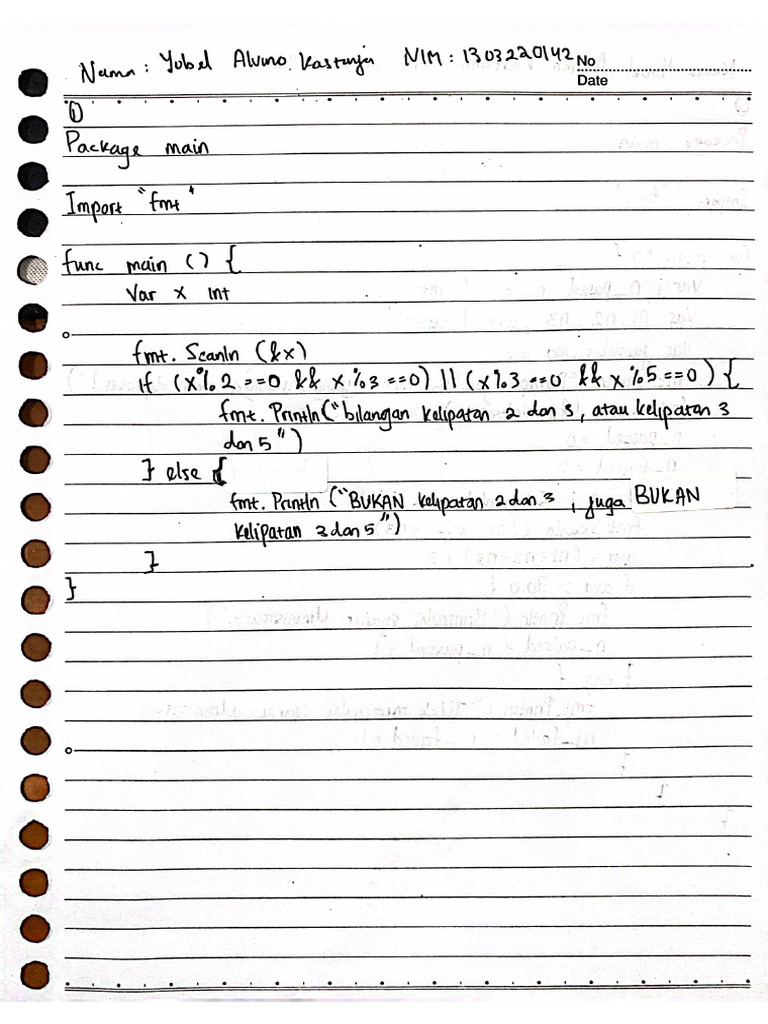 Nama : Yobel Alvino Kastanja NIM : 1303220142 No
Date
①
Package main
Import "fmt"
func main () {
Var x int
fmt. Scanln (&x)
If (x%2 ==0 && x%3 ==0) || (x%3 ==0 && x%5 ==0) {
fmt. Println("bilangan kelipatan 2 dan 3, atau kelipatan 3
dan 5")
} else {
fmt. Println ("BUKAN kelipatan 2 dan 3 , juga BUKAN
kelipatan 3 dan 5")
}
}